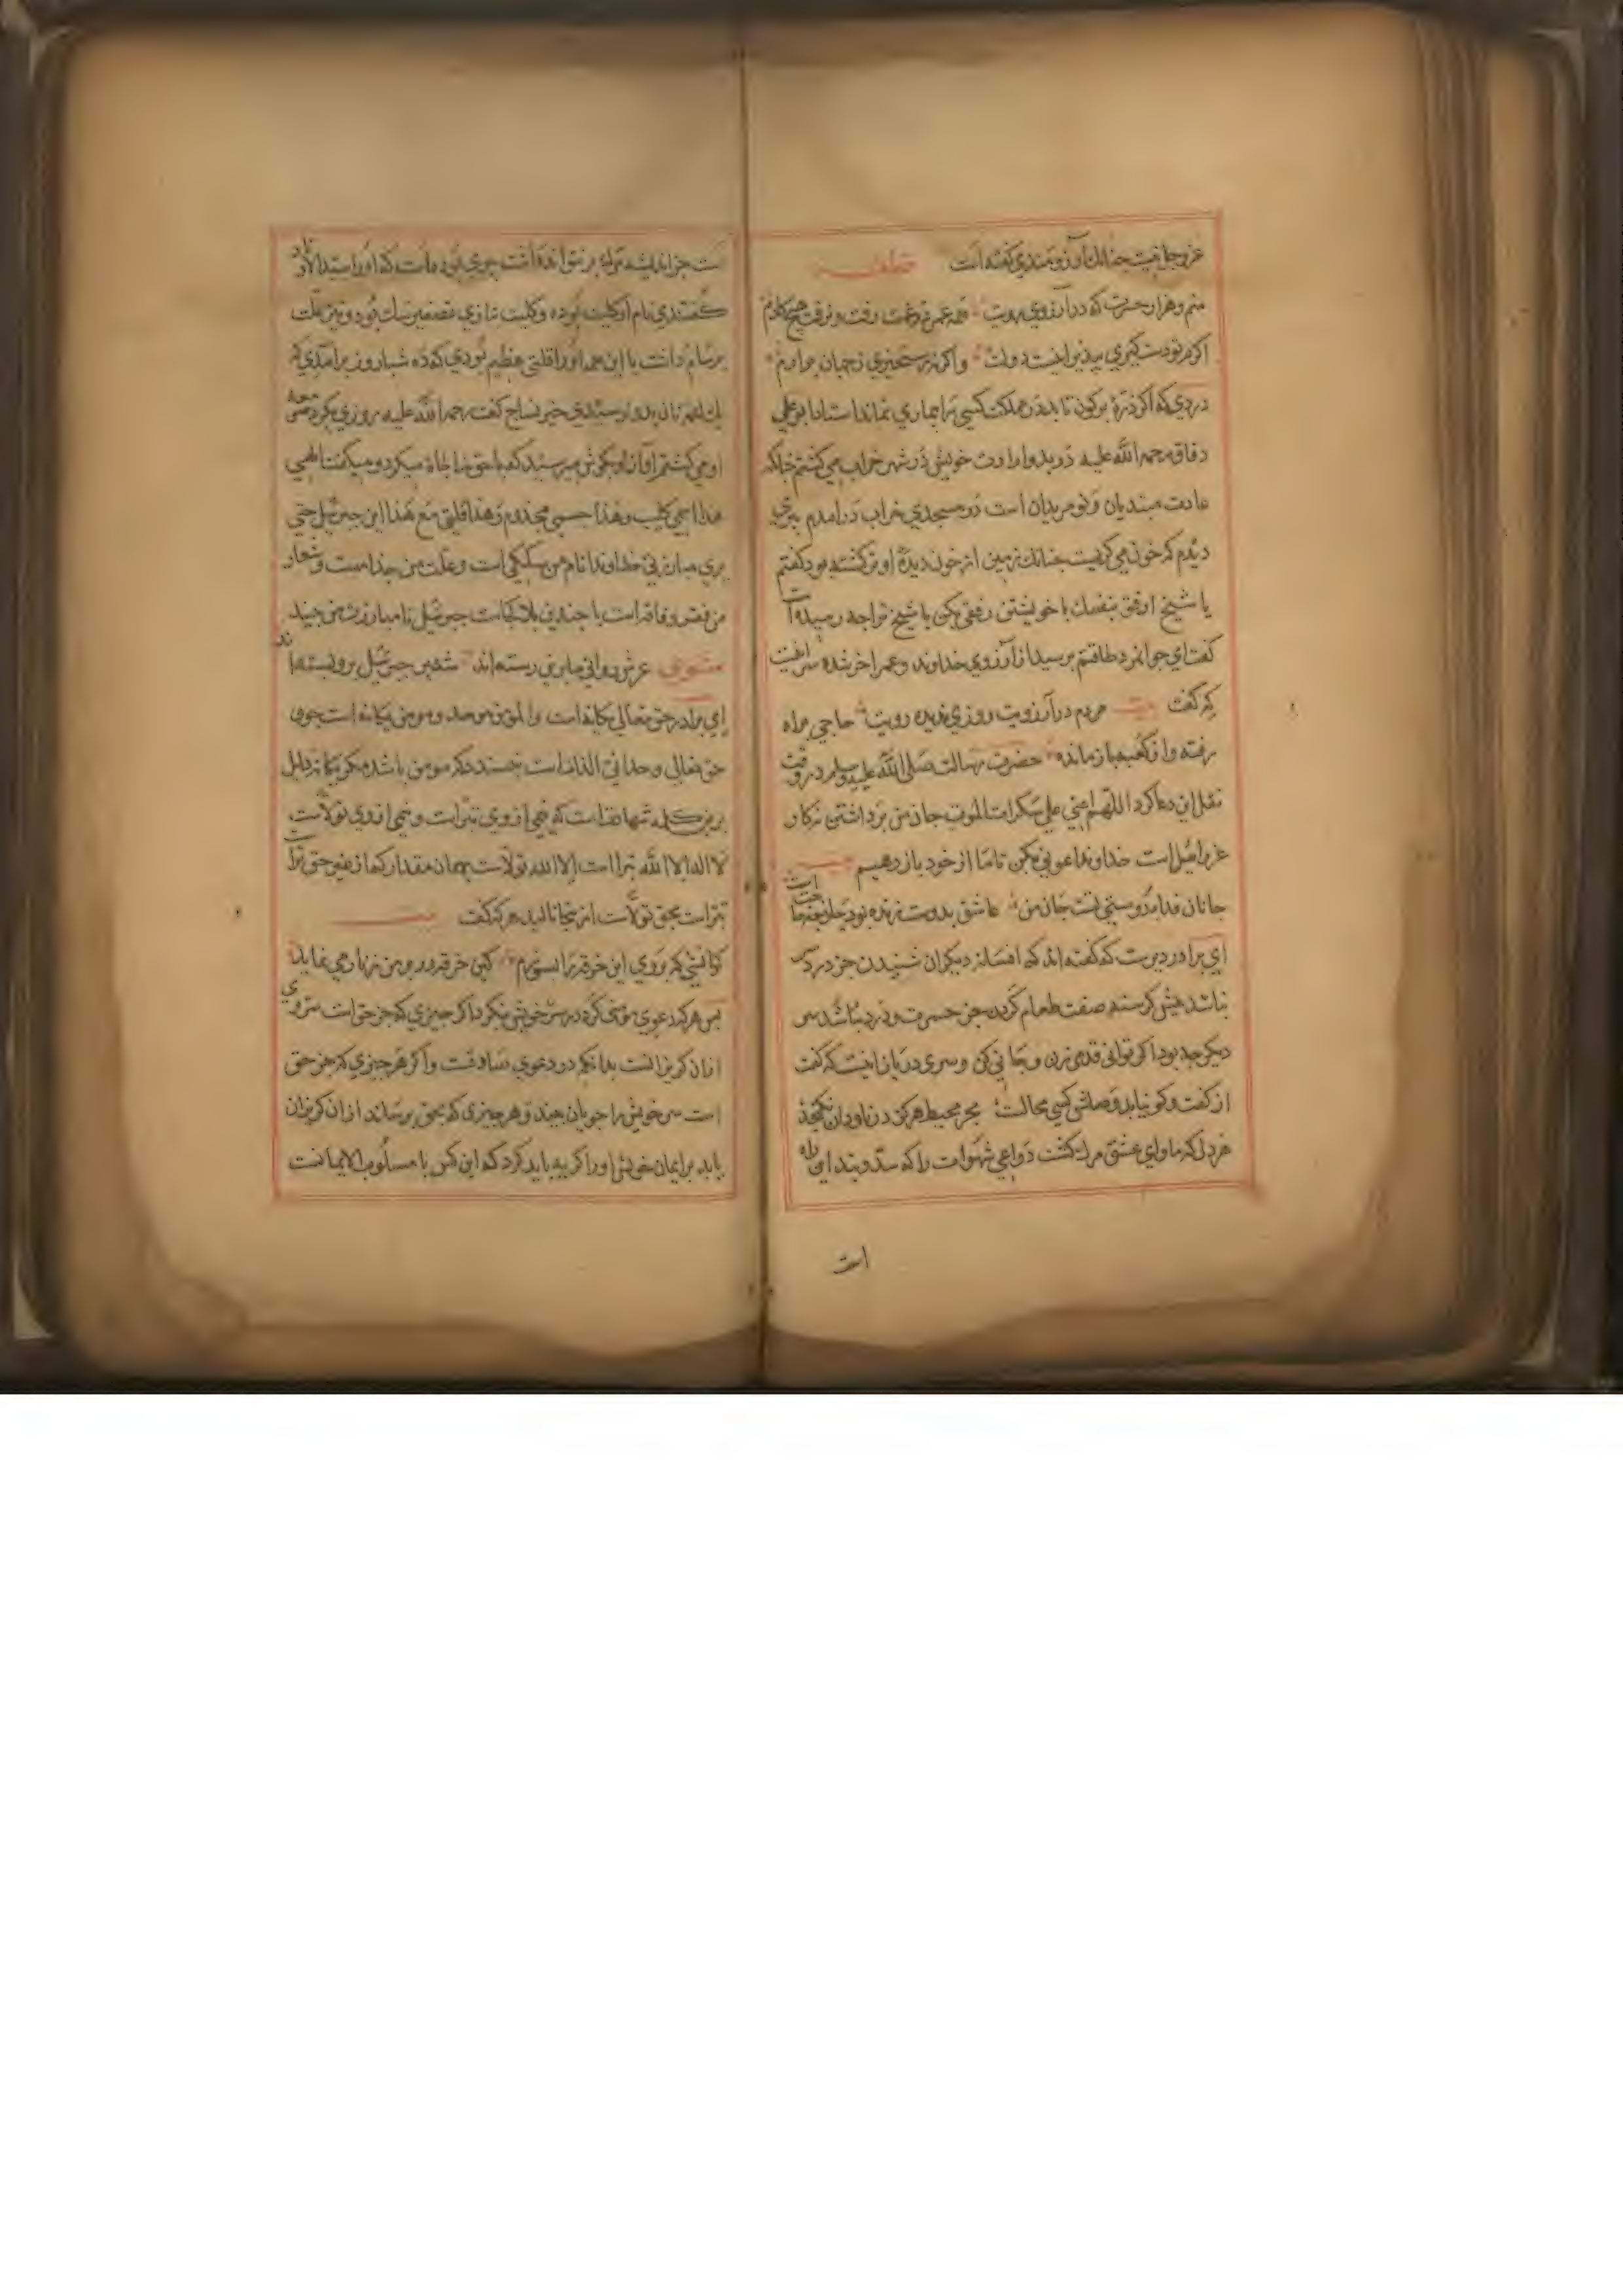 عزوجل نیست چنانک آرزومندی گفته است قطعه
منم و هزار حسرت که در آرزوی رویت همه عمر من برفت و نرفت هیچ کارم
اگرم تو دست گیری بپذیر اینت دولت واگر نه رستخیزی ز جهان برآرم
دردی که اگر ذرهٔ بر کون تابد در مملکت کسی را بیماری نماند استاد ابو علی
دقاق رحمه الله علیه در بدو ارادت خویش در شهر خراب می کشتم چنانکه
عادت مبتدیان و نو مریدان است در مسجدی خراب درآمدم پیری
دیدم که خون می کریست چنانک زمین از خون دیدهٔ او تر کشته بود گفتم
یا شیخ ارفق بنفسك با خویشتن رفقی بکن یا شیخ ترا چه رسیده است
گفت ای جوانمرد طاقتم برسید از آرزوی خداوند و عمر آخر شده
که گفت بیت مردم در آرزویت روزی ندیده رویت حاجی براه
رفته و از کعبه باز مانده حضرت رسالت صلی الله علیه وسلم در وقت
نقل این دعا کرد اللهم اعنی علی سکرات الموت جان من برداشتن نه کار
عزرائیل است خداوندا عونی بکن تا ما از خود باز دهیم بیت
جانان فدا بدوستی تست جان من عاشق بدوست زنده بود
ای برادر دیریست که گفته اند که افسانه دیکران شنیدن جز درد سر
نباشد پیش کرسنه صفت طعام کردن جز حسرت و درد نباشد
دیگر چه بود اگر توانی قدمی زن و جانی کن و سری در باز اینست که گفت
از کفت و کو نیابد وصلش کسی محالست بحر محیط هرکز در ناودان نکنجد
هر دل که ماوای عشق مرک کشت دواعی شهوات را که سد و بند این راه
است
است جز اندیشه مرک بر نتواند داشت
گفتندی نام او کلیب بوده و کلیب بتازی تصغیر سک بود و نیز علت
برسام داشت با این همه او را قلتی عظیم بودی که ده شباروز برآمدی که
یک لقمه نان بدو نرسیدی خیر نساج گفت رحمه الله علیه روزی بکرد
او می کشتم آواز او بکوش من رسید که با حق مناجاة میکرد و میگفت الهی
هذا اسمی کلیب وهذا جسمی مجذوم وهذا قلتی مع هذا این جبرئیل حتی
یری مبارزتی خداوندا نام من سککی است و علت من جذامست و شعار
من فقر و فاقه است با چندین بلا کجاست جبرئیل تا مبارزت من بیند
مثنوی
ای برادر حق تعالی یکانه است و المؤمن موحد و مومن یکانه است چون
حق تعالی وحدانی الذات است بخسند دکر مومن باشد مکر یکانه دلیل
برین کلمه شهادتست که نیمی ازوی تبراست و نیمی ازوی تولاست
لا اله الا الله تبرا است الا الله تولاست بهمان مقدار که از غیر حق ترا
تبراست بحق تولاست از ینجا نالید هر که گفت بیت
کو آتشی که بروی این خرقه را بسوزم کین خرقه در بر من زنار می نماید
پس هر که دعوی مؤمنی کرد در سر خویش بنکرد اکر چیزی که جز حق است سر وی
ازان کریزانست بدانکه در دعوی صادقست واکر هر چیزی که جز حق
است سر خویش را جویان بیند و هر چیزی که بحق برساند ازان کریزان
یابد بر ایمان خویش او را کریه باید کرد که این کس یا مسلوب الایمانست